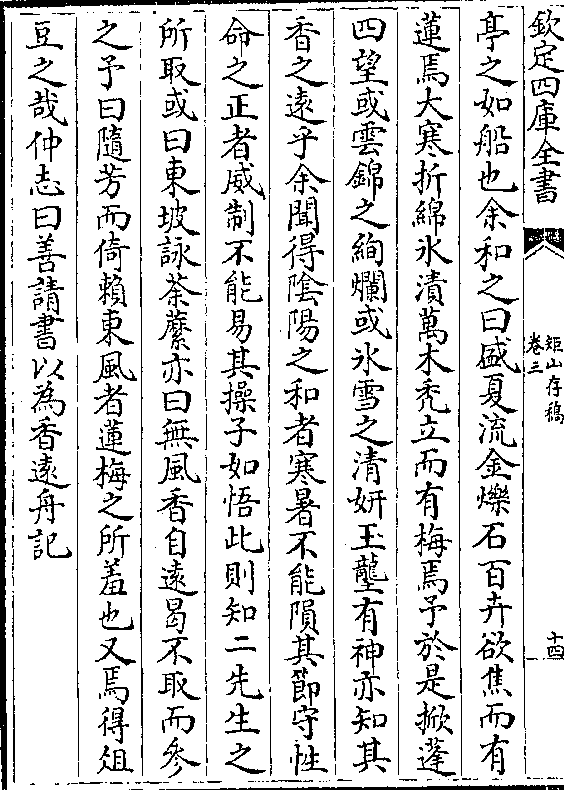 欽定四庫全書
矩山存稿
卷三
十四
亭之如船也余和之曰盛夏流金爍石百卉欲焦而有
蓮焉大寒折綿氷漬萬木秃立而有梅焉予於是掀蓬
四望或雲錦之絢爛或氷雪之清妍玉壟有神亦知其
香之遠乎余聞得隂陽之和者寒暑不能隕其節守性
命之正者威制不能易其操子如悟此則知二先生之
所取或曰東坡詠荼蘼亦曰無風香自遠曷不取而參
之予曰隨芳而倚賴東風者蓮梅之所羞也又焉得俎
豆之哉仲志曰善請書以為香逺舟記